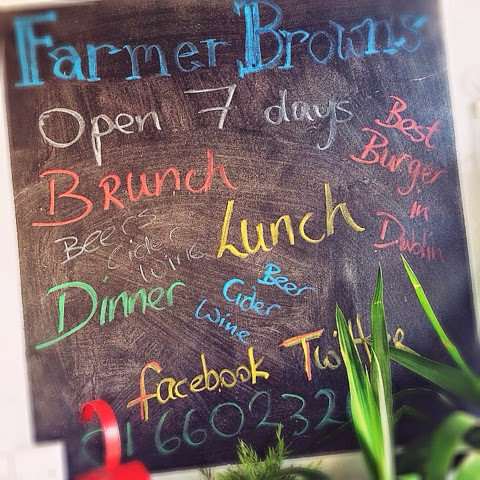 Farmer Browns
Open 7 days
Best
Burger
in
Dublin
Brunch
Beers
Cider
Wine
Lunch
Dinner
Beer
Cider
Wine
facebook Twitter
01 660232